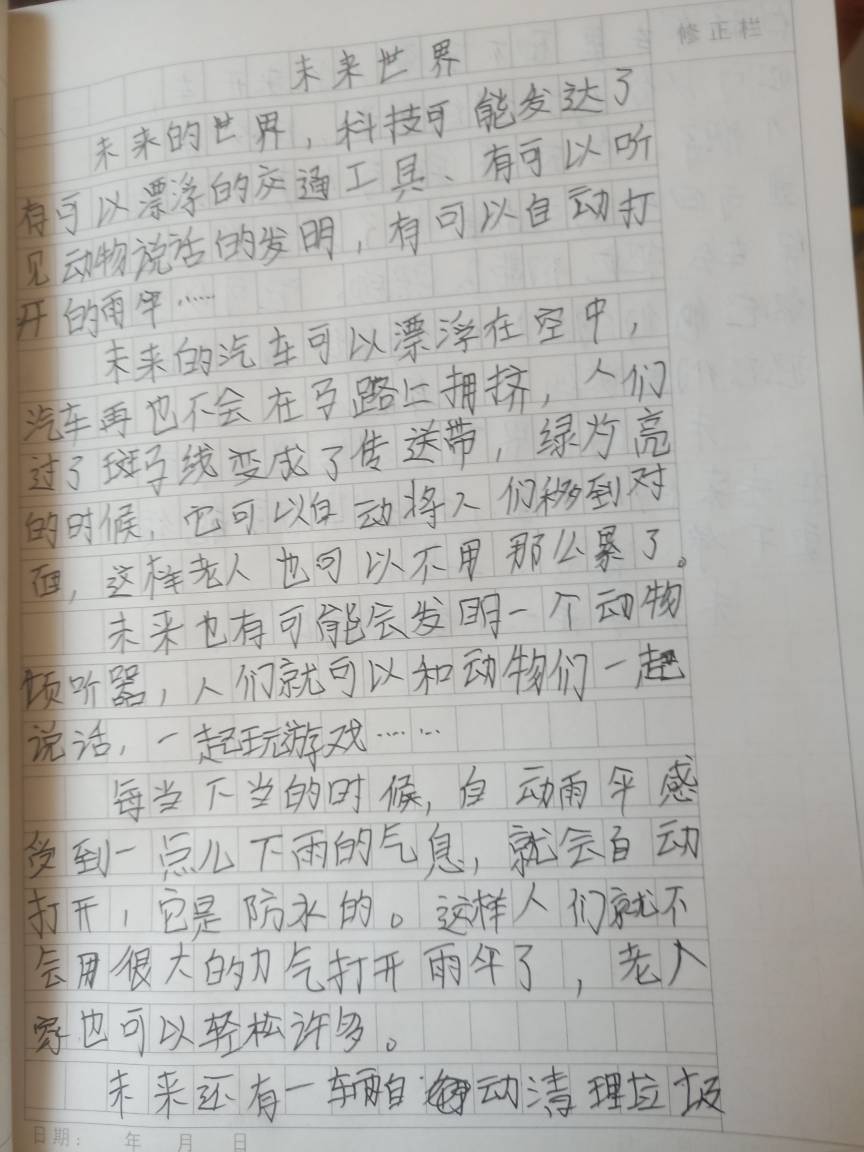 修正栏
未来世界
未来的世界，科技可能发达了
有可以漂浮的交通工具、有可以听
见动物说话的发明，有可以自动打
开的雨伞……
未来的汽车可以漂浮在空中，
汽车再也不会在马路上拥挤，人们
过了斑马线变成了传送带，绿灯亮
的时候，它可以自动将人们移到对
面，这样老人也可以不用那么累了。
未来也有可能会发明一个动物
倾听器，人们就可以和动物们一起
说话，一起玩游戏……
每当下当的时候，自动雨伞感
受到一点儿下雨的气息，就会自动
打开，它是防水的。这样人们就不
会用很大的力气打开雨伞了，老人
家也可以轻松许多。
未来还有一辆自动清理垃圾
日期： 年 月 日